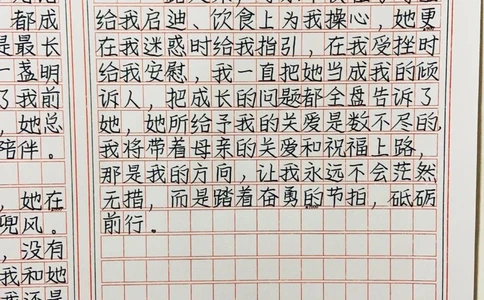 都成
是最长
一盏明
了我前
，她总
陪伴。
，她在
兜风。
，没有
我和她
给我启迪、饮食上为我操心，她更
在我迷惑时给我指引，在我受挫时
给我安慰，我一直把她当成我的倾
诉人，把成长的问题都全盘告诉了
她，她所给予我的关爱是数不尽的，
我将带着母亲的关爱和祝福上路，
那是我的方向，让我永远不会茫然
无措，而是踏着奋勇的节拍，砥砺
前行。